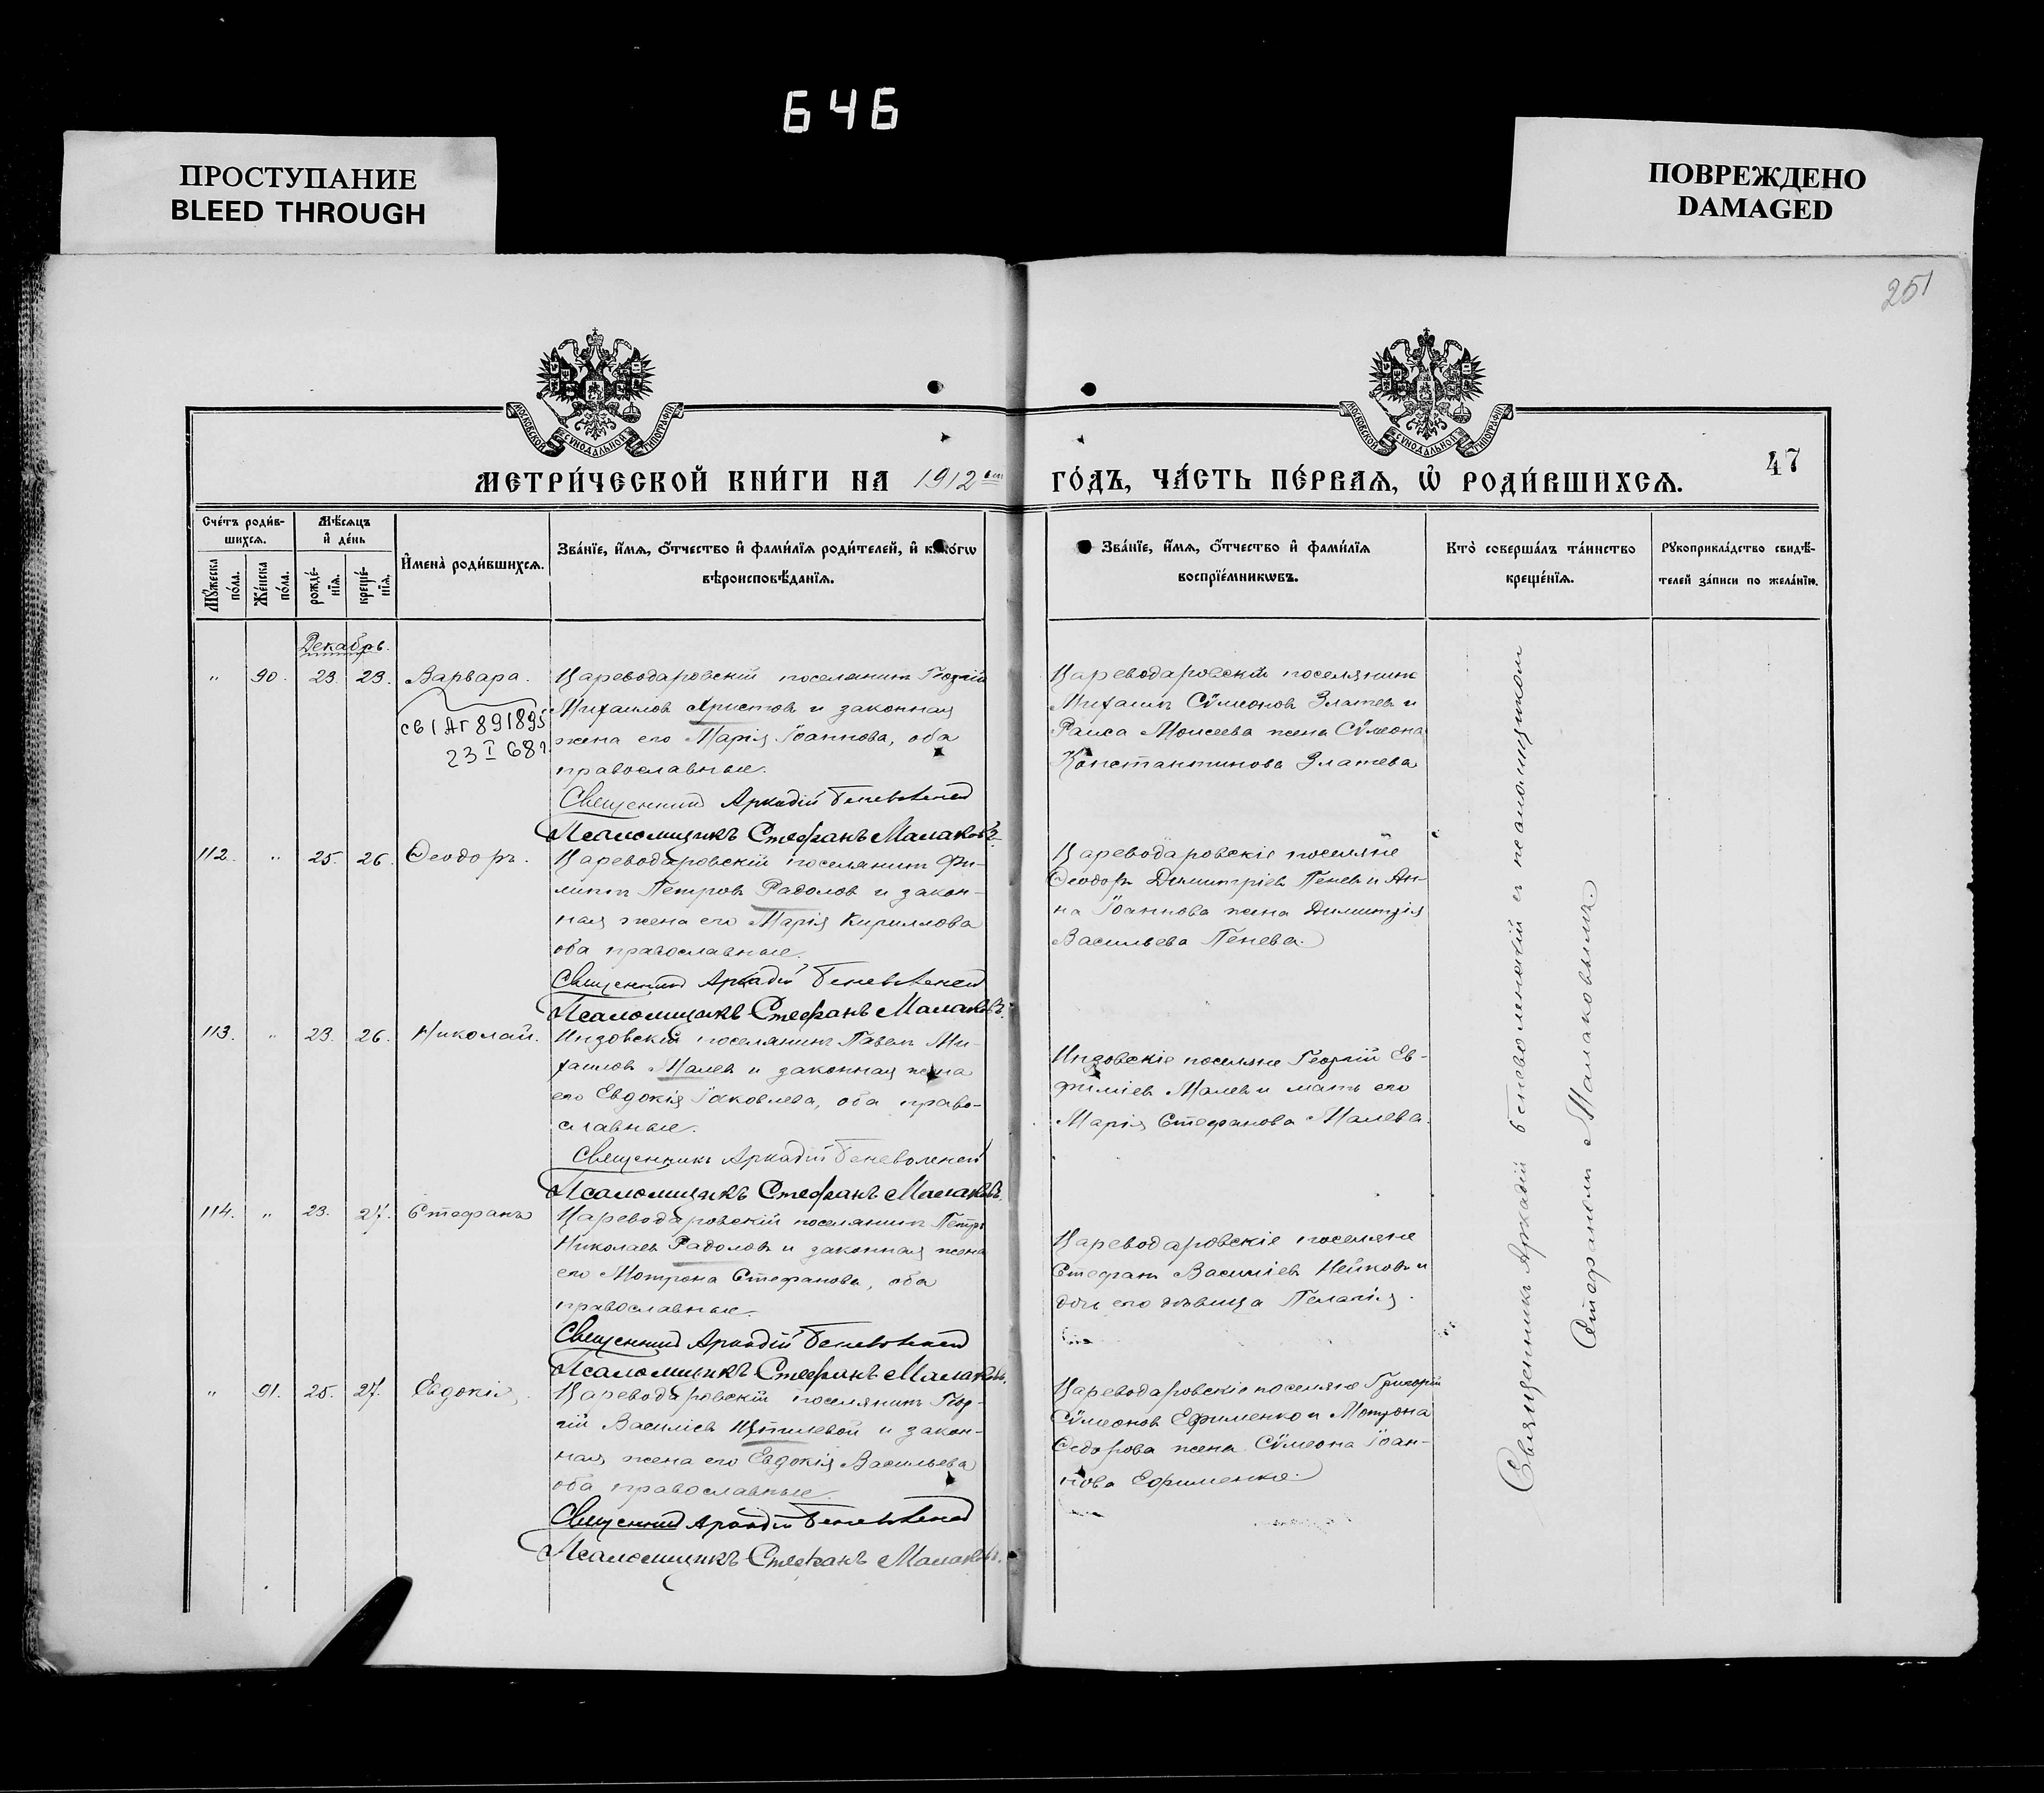 646
ПРОСТУПАНИЕ
BLEED THROUGH
ПОВРЕЖДЕНО
DAMAGED
251
МОСКОВСКОЙ СѴНОДАЛЬНОЙ ТИПОГРАФІИ
МОСКОВСКОЙ СѴНОДАЛЬНОЙ ТИПОГРАФІИ
МЕТРИ́ЧЕСКОЙ КНИ́ГИ НА 1912 ГО́ДЪ, ЧА́СТЬ ПЕ́РВАѦ, Ѡ҆ РОДИ́ВШИХСѦ.
47
Сче́тъ роди́в-
шихсѧ.
Мꙋ́жеска по́ла.
Же́нска по́ла.
Мѣ́сѧцъ
и҆ де́нь
рожде́-
нїѧ.
креще́-
нїѧ.
И҆мена̀ роди́вшихсѧ.
Зва́нїе, и҆́мѧ, ѻ҆́тчество и҆ фами́лїѧ роди́телей, и҆ како́гѡ
вѣроисповѣ́данїѧ.
Зва́нїе, и҆́мѧ, ѻ҆́тчество и҆ фами́лїѧ
воспрїе́мникѡвъ.
Кто̀ соверша́лъ та́инство
креще́нїѧ.
Рꙋкоприкла́дство свидѣ́-
телей за́писи по жела́нїю.
Декабрь.
" 90. 23. 23. Варвара.
св I АГ 891895
23 I 68г
Цареводаровскій поселянинъ Георгій
Михаиловъ Христовъ и законная
жена его Марія Іоаннова, оба
православные.
Священникъ Аркадій Беневоленскій
Псаломщикъ Стефанъ Малаковъ.
Цареводаровскій поселянинъ
Михаилъ Сѵмеоновъ Златевъ и
Раиса Моисеева жена Сѵмеона
Константинова Златева
112. " 25. 26. Ѳеодоръ.
Цареводаровскій поселянинъ Фи-
липпъ Петровъ Радоловъ и закон-
ная жена его Марія Кириллова
оба православные.
Священникъ Аркадій Беневоленскій
Псаломщикъ Стефанъ Малаковъ.
Цареводаровскіе поселяне
Ѳеодоръ Димитріевъ Пеневъ и Ан-
на Іоаннова жена Димитрія
Васильева Пенева.
113. " 23. 26. Николай.
Индовскій поселянинъ Павелъ Ми-
хаиловъ Малевъ и законная жена
его Евдокія Іаковлева, оба право-
славные.
Священникъ Аркадій Беневоленскій
Псаломщикъ Стефанъ Малаковъ.
Индовскіе поселяне Георгій Ев-
фиміевъ Малевъ и мать его
Марія Стефанова Малева.
114. " 23. 27. Стефанъ
Цареводаровскій поселянинъ Петръ
Николаевъ Радоловъ и законная жена
его Мотрона Стефанова, оба
православные.
Священникъ Аркадій Беневоленскій
Псаломщикъ Стефанъ Малаковъ.
Цареводаровскіе поселяне
Стефанъ Василіевъ Нейковъ и
дочь его дѣвица Пелагія.
" 91. 25. 27. Евдокія,
Цареводаровскій поселянинъ Геор-
гій Василіевъ и закон-
ная жена его Евдокія Васильева
оба православные.
Священникъ Аркадій Беневоленскій
Псаломщикъ Стефанъ Малаковъ.
Цареводаровскіе поселяне Григорій
Сѵмеоновъ Ефименко и Мотрона
Ѳедорова жена Сѵмеона Іоан-
нова Ефименко.
Священникъ Аркадій Беневоленскій съ псаломщикомъ
Стефаномъ Малаковымъ.